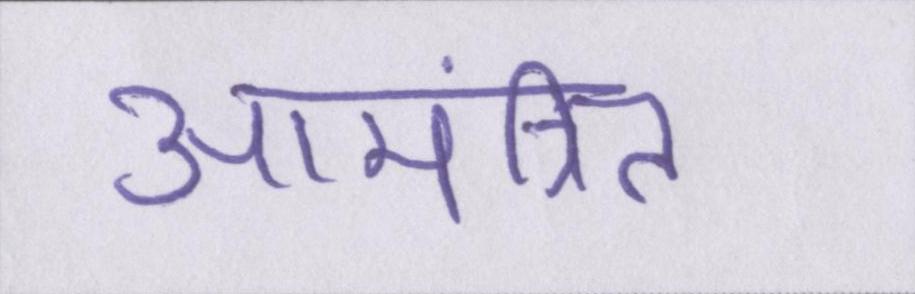 आमंत्रित